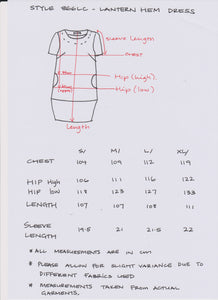 STYLE EGGLC - LANTERN HEM DRESS
SLEEVE LENGTH
CHEST
HIP (HIGH)
HIP (LOW)
LENGTH
S/ M/ L/ XL/
CHEST 109 109 112 119
HIP HIGH 106 111 116 122
HIP LOW 118 123 127 133
LENGTH 107 107 108 111
SLEEVE
LENGTH 19.5 21 21.5 22
* ALL MEASUREMENTS ARE IN CM
* PLEASE ALLOW FOR SLIGHT VARIANCE DUE TO
DIFFERENT FABRICS USED
* MEASUREMENTS TAKEN FROM ACTUAL
GARMENTS.